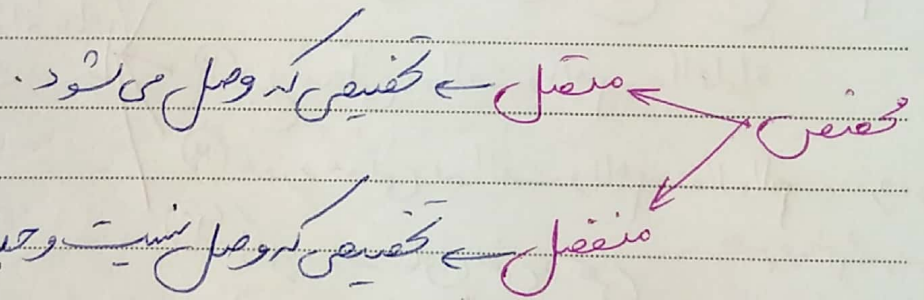 مخصص
متصل ← تخصیصی که وصل می شود.
منفصل ← تخصیصی که وصل نیست و